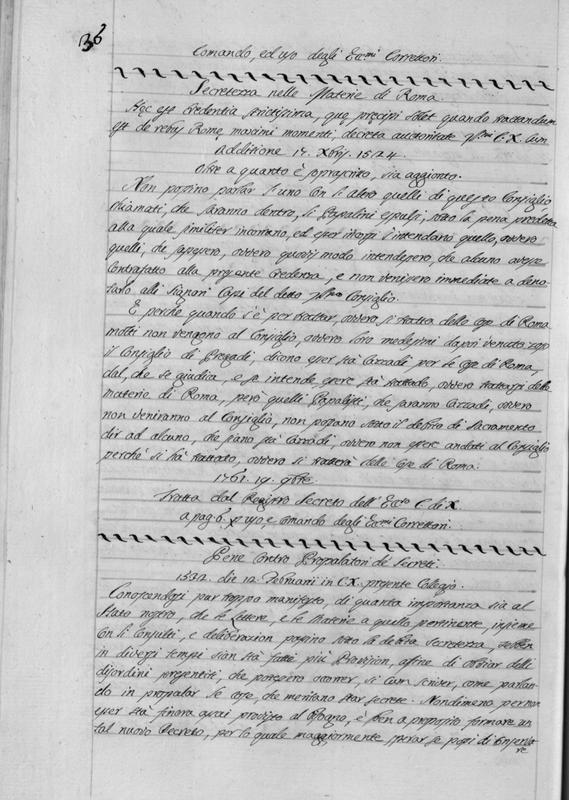 36
Comando, ed uso degli Ecc.mi Correttori.
Secretezza nelle Materie di Roma.
Hec est Credentia strictissima, que precipi solet quando tractandum
est de rebus Rome maximi momenti, decreta auctoritate C. X. cum
additione 17. Xbris 1524.
Oltre a quanto è soprascritto, sia aggionto.
Non possino parlar l'uno con l'altro quelli di questo Consiglio
chiamati, che saranno dentro, li Papalini espulsi, sotto la pena predetta
alla quale similiter incorrano, ed esser incorsi s'intendano quello, ovvero
quelli, che sapessero, ovvero quovis modo intendessero, che alcuno avesse
contrafatto alla presente credenza, e non venissero immediate a denon-
tiarlo alli Signori Capi del detto Consiglio.
E perche quando s'è per trattar, ovvero si tratta delle cose di Roma
molti non vengono al Consiglio, ovvero loro medesimi dapoi venuto zozo
il Consiglio di Pregadi, dicono esser stà Cazzadi per le cose di Roma,
dal, che se giudica, e se intende, esser stà trattado, ovvero trattarsi delle
materie di Roma, però quelli Papalisti, che saranno Cazzadi, ovvero
non veniranno al Consiglio, non possano sotto il debito di Sacramento
dir ad alcuno, che siano stà Cazzadi, ovvero non esser andati al Consiglio
perchè si hà trattato, ovvero si tratterà delle cose di Roma.
1761. 19. 9bre.
Tratta dal Registro Secreto dell' Ecc.so C. di X.
a pag. 6. p uso, e comando degli Ecc.mi Correttori.
Pene contro Propalatori de' Secreti.
1532. die 12 Februarii in C. X. presente Collegio.
Conoscendosi pur troppo manifesto, di quanta importanza sia al
Stato nostro, che le Lettere, e le Materie a quello pertinente, insieme
con li Consulti, e deliberazion passino sotto la debita secretezza,
in diversi tempi sian stà fatte più Provision, affine di obviar delli
disordini presentiti, che potessero occorrer, sì cum scriver, come parlan-
do in propalar le cose, che meritano star secrete. Nondimeno per non
esser stà finora quasi provisto al bisogno, è ben a proposito formare un
tal nuovo Decreto, per lo quale maggiormente, sperar se possi di conserva
re